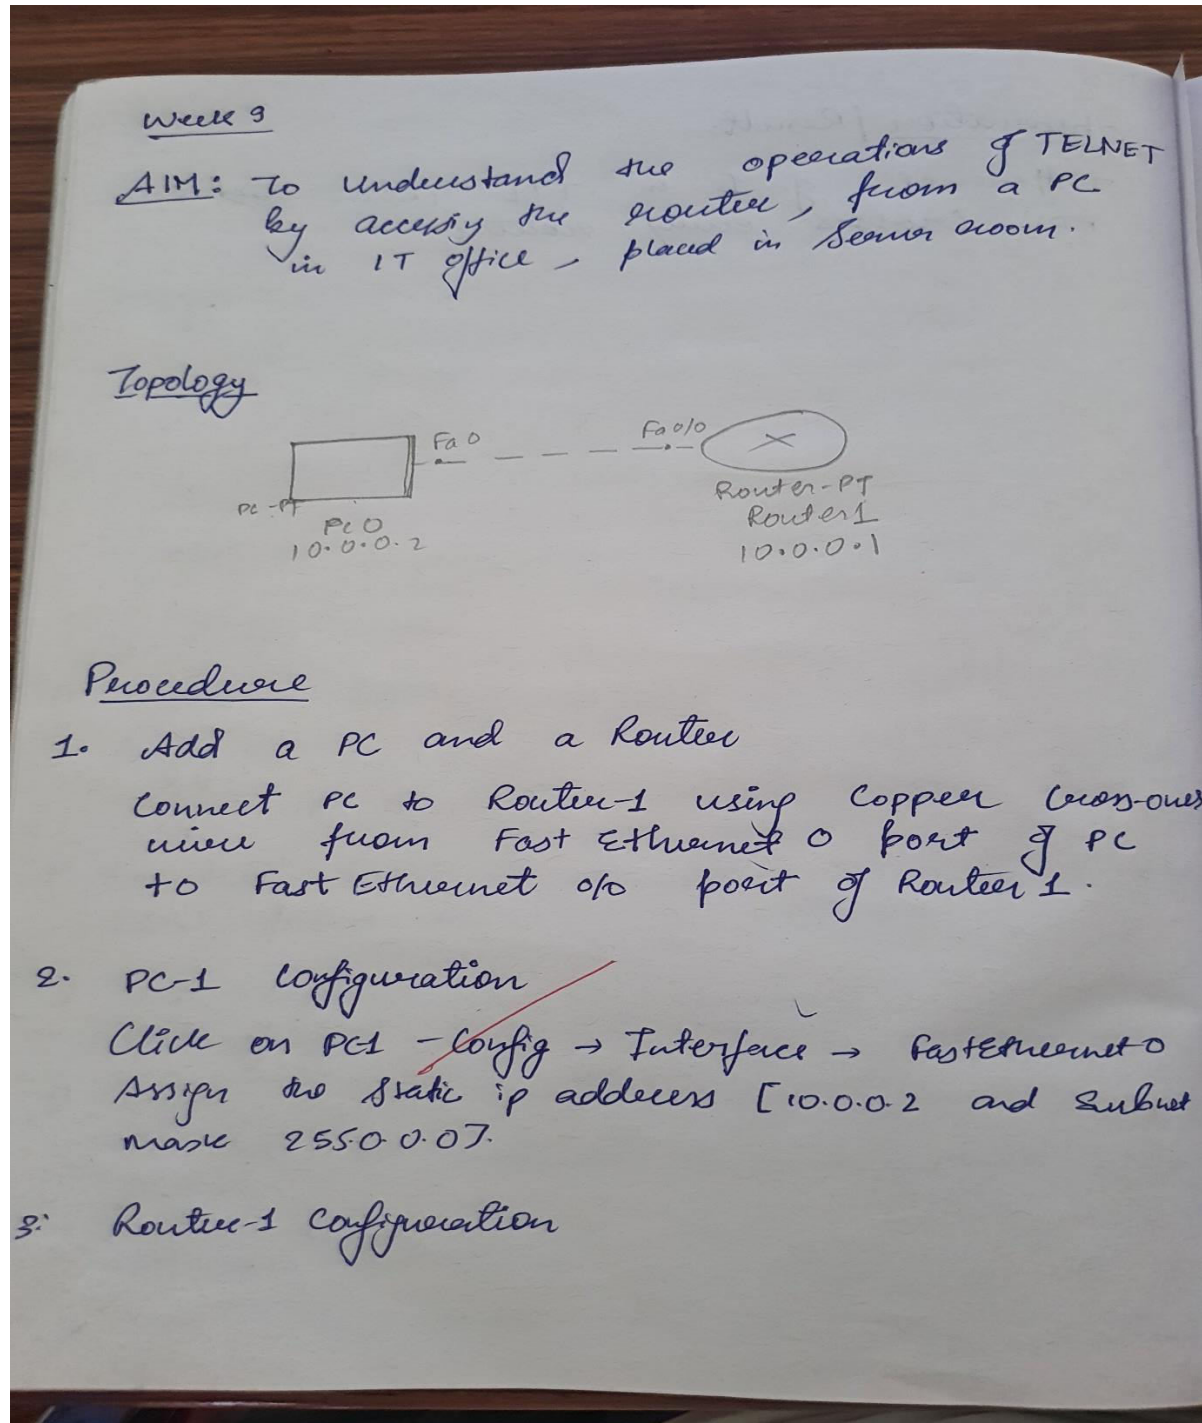 Week 9
AIM: To understand the operations of TELNET
by accessing the router, from a PC
in IT office, placed in Server room.
Topology
Fa0 Fa0/0
PC-PT
PC0
10.0.0.2
Router-PT
Router1
10.0.0.1
Procedure
1. Add a PC and a Router
Connect PC to Router-1 using Copper Cross-over
wire from Fast Ethernet 0 port of PC
to Fast Ethernet 0/0 port of Router 1.
2. PC-1 Configuration
Click on PC1 - Config → Interface → FastEthernet0
Assign the static ip address [10.0.0.2 and Subnet
mask 255.0.0.0].
3. Router-1 Configuration